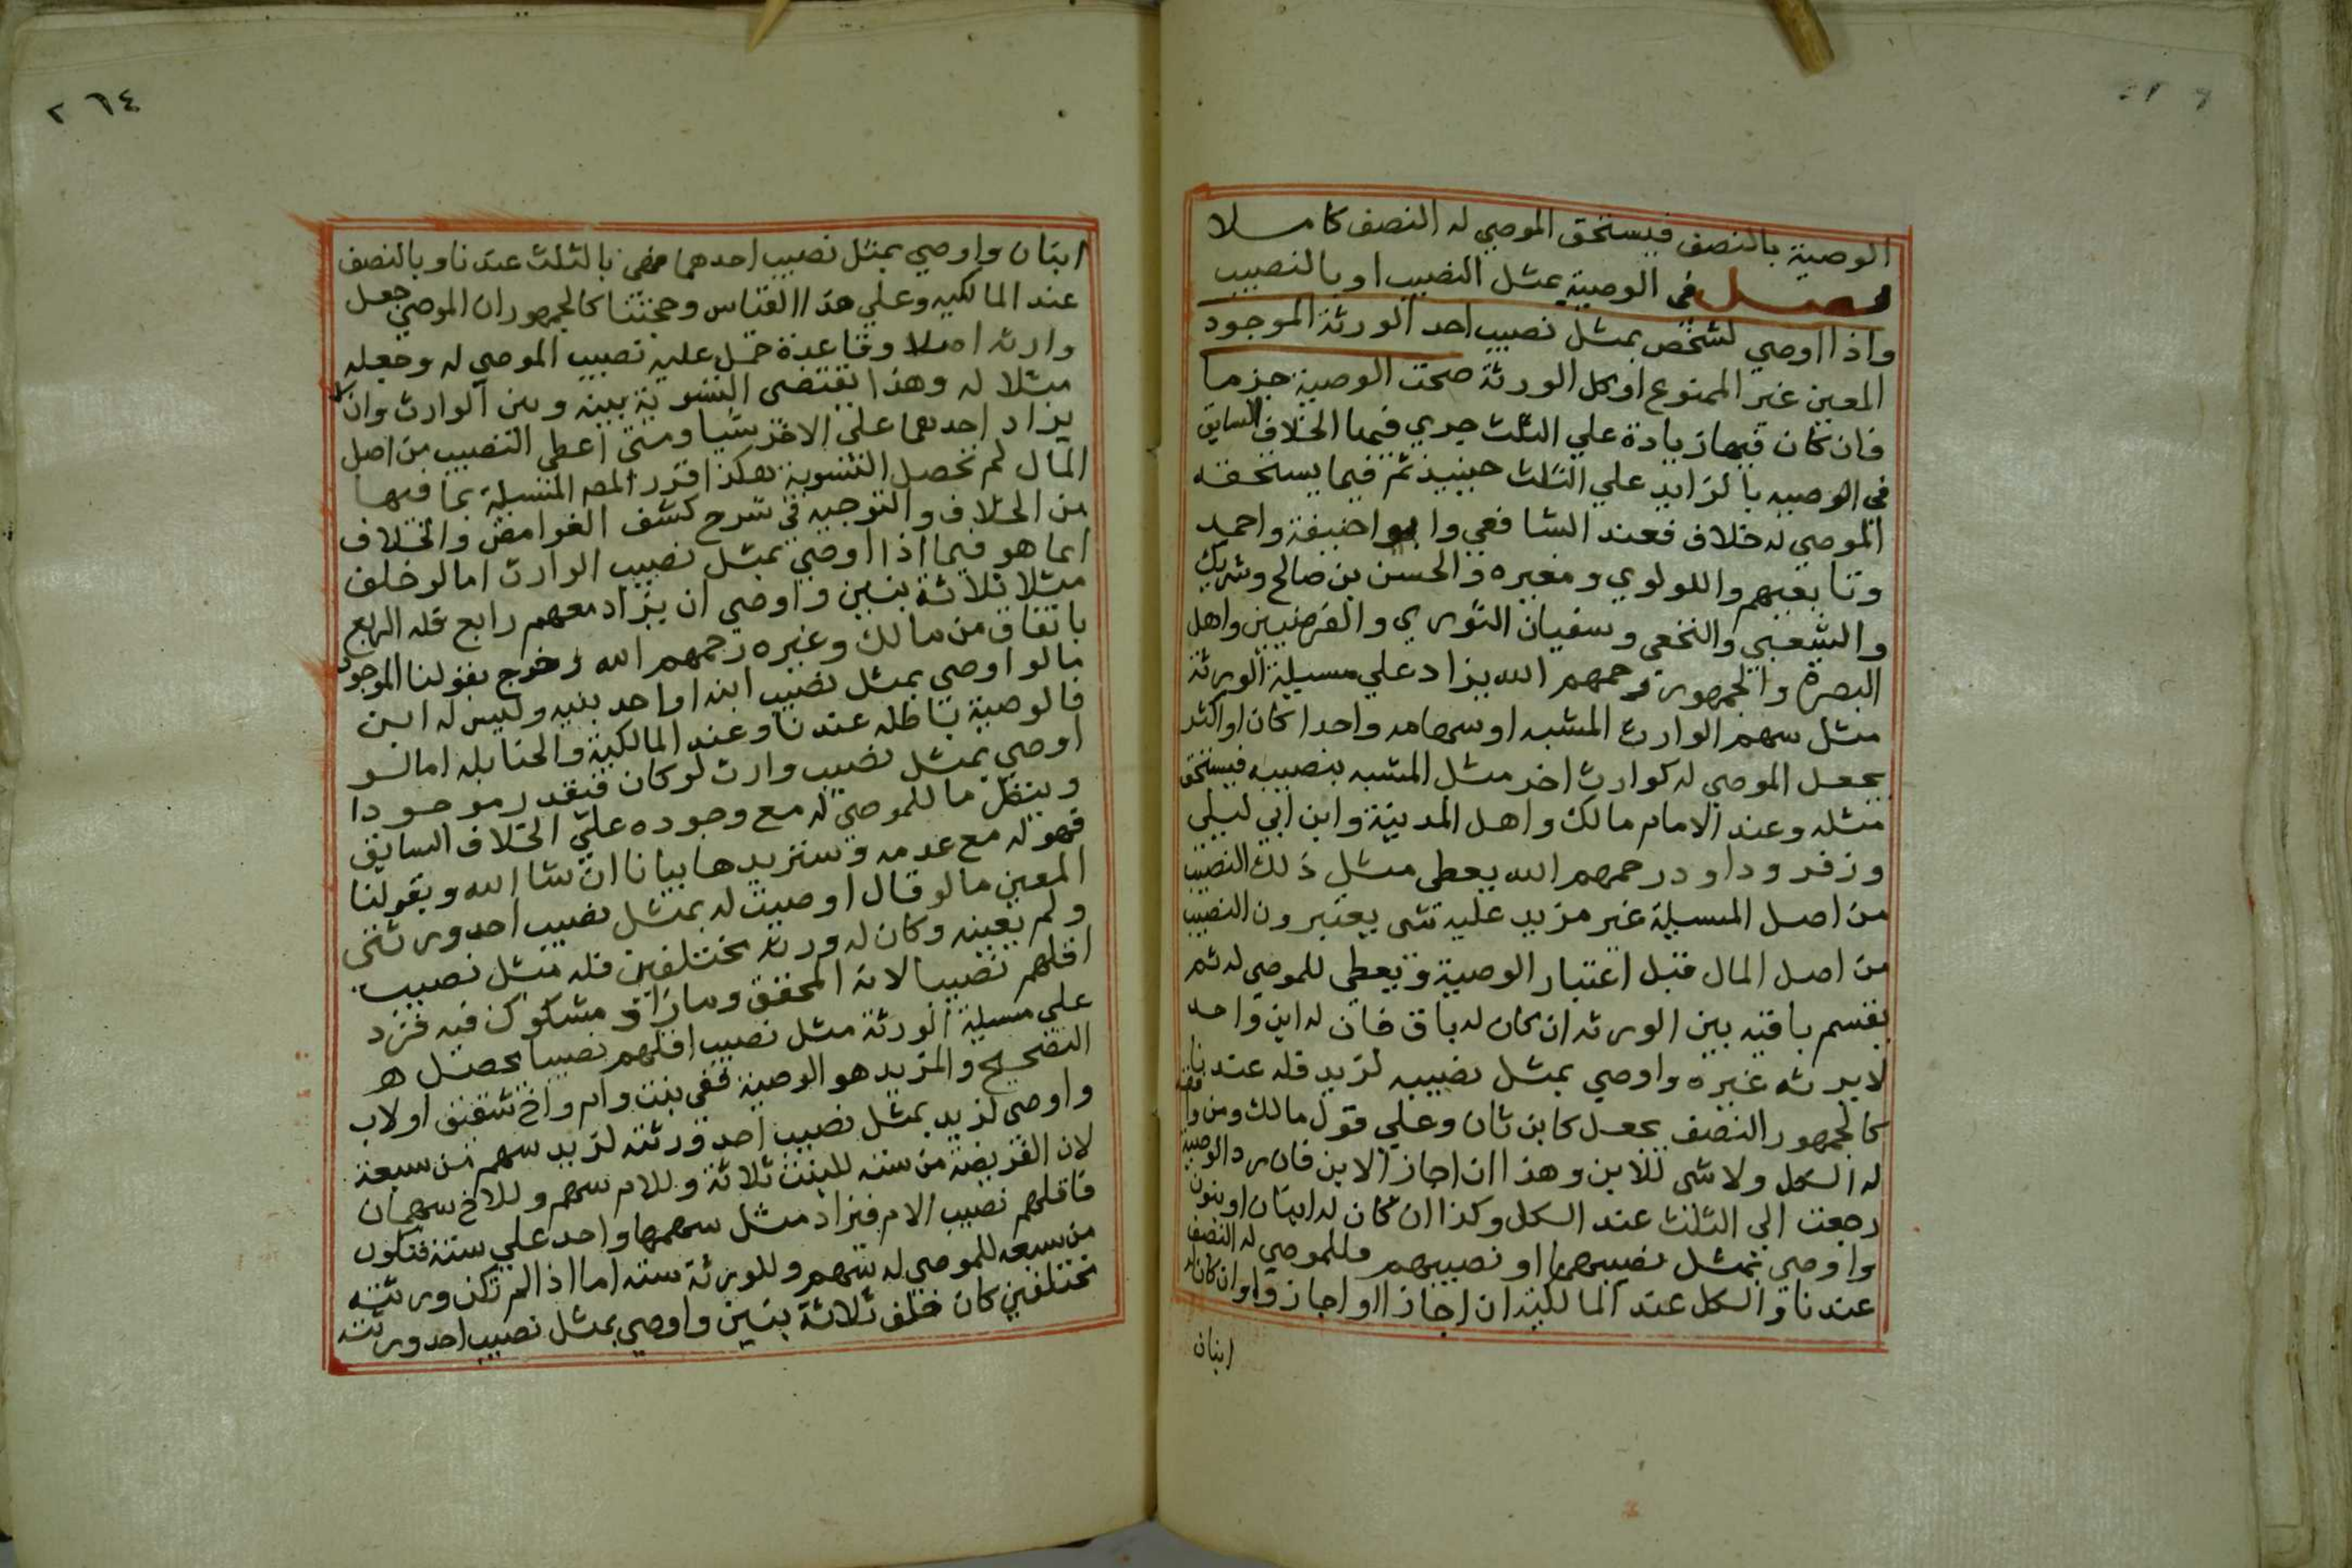 الوصية بالنصف فيستحق الموصي له النصف كاملا
فصل في الوصية بمثل النصيب او بالنصيب
واذا اوصي لشخص بمثل نصيب احد الورثة الموجود
المعين غير الممنوع او كل الورثة صحت الوصية جزما
فان كان فيها زيادة علي الثلث جري فيها الخلاف السابق
في الوصيه بالزايد علي الثلث حينيذ ثم فيما يستحقه
الموصي له خلاف فعند الشافعي وابو حنيفة واحمد
وتابعيهم واللولوي ومغيره والحسن بن صالح وشريك
والشعبي والنخعي وسفيان الثوري والفرضيين واهل
البصرة والجمهور رحمهم الله يزاد علي مسيلة الورثة
مثل سهم الوارث المشبه او سهامه واحدا كان او اكثر
يجعل الموصي له كوارث اخر مثل المشبه بنصيبه فيستحق
مثله وعند الامام مالك واهل المدينة وابن ابي ليلي
وزفر وداود رحمهم الله يعطي مثل ذلك النصيب
من اصل المسيلة غير مزيد عليه شي يعتبرون النصيب
من اصل المال قبل اعتبار الوصية ويعطي للموصي له ثم
يقسم باقيه بين الورثه ان كان له باق فان له ابن واحد
لا يرثه غيره واوصي بمثل نصيبه لزيد فله عندنا
كالجمهور النصف يجعل كابن ثان وعلي قول مالك ومن وافقه
له الكل ولا شي للابن وهذا ان اجاز الابن فان رد الوصية
رجعت الي الثلث عند الكل وكذا ان كان له ابنان او بنون
واوصي بمثل نصيبهما او نصيبهم فللموصي له النصف
عندنا والكل عند المالكية ان اجازا او اجازوا وان كان له
ابنان
٢٦٤
ابنان واوصي بمثل نصيب احدهما فهي بالثلث عندنا وبالنصف
عند المالكيه وعلي هذا القياس وحجتنا كالجمهور ان الموصي جعل
وارثه اصلا وقاعدة حمل عليه نصيب الموصي له وجعله
مثلا له وهذا يقتضي التسوية بينه وبين الوارث وان لا
يزاد احدهما علي الاخر شيا ومتي اعطي النصيب من اصل
المال لم تحصل التسوية هكذا قرر المص المسيلة بما فيها
من الخلاف والتوجيه في شرح كشف الغوامض والخلاف
انما هو فيما اذا اوصي بمثل نصيب الوارث اما لو خلف
مثلا ثلاثة بنين واوصي ان يزاد معهم رابع فله الربع
باتفاق من مالك وغيره رحمهم الله وخرج بقولنا الموجود
ما لو اوصي بمثل نصيب ابنه او احد بنيه وليس له ابن
فالوصية باطله عندنا وعند المالكية والحنابله اما لو
اوصي بمثل نصيب وارث لو كان فيقدر موجودا
وينظر ما للموصي له مع وجوده علي الخلاف السابق
فهو له مع عدمه وسنزيدها بيانا ان شا الله وبقولنا
المعين ما لو قال اوصيت له بمثل نصيب احد ورثتي
ولم يعينه وكان له ورثة مختلفين فله مثل نصيب
اقلهم نصيبا لانه المحقق وما زاد مشكوك فيه فزد
علي مسيلة الورثة مثل نصيب اقلهم نصيبا يحصل
التصحيح والمزيد هو الوصية ففي بنت وام واخ شقيق او لاب
واوصي لزيد بمثل نصيب احد ورثته لزيد سهم من سبعة
لان الفريضة من سته للبنت ثلاثة وللام سهم وللاخ سهمان
فاقلهم نصيب الام فيزاد مثل سهمها واحد علي ستة فتكون
من سبعه للموصي له سهم وللورثة سته اما اذا لم تكن ورثته
مختلفين كان خلف ثلاثة بنين واوصي بمثل نصيب احد ورثته